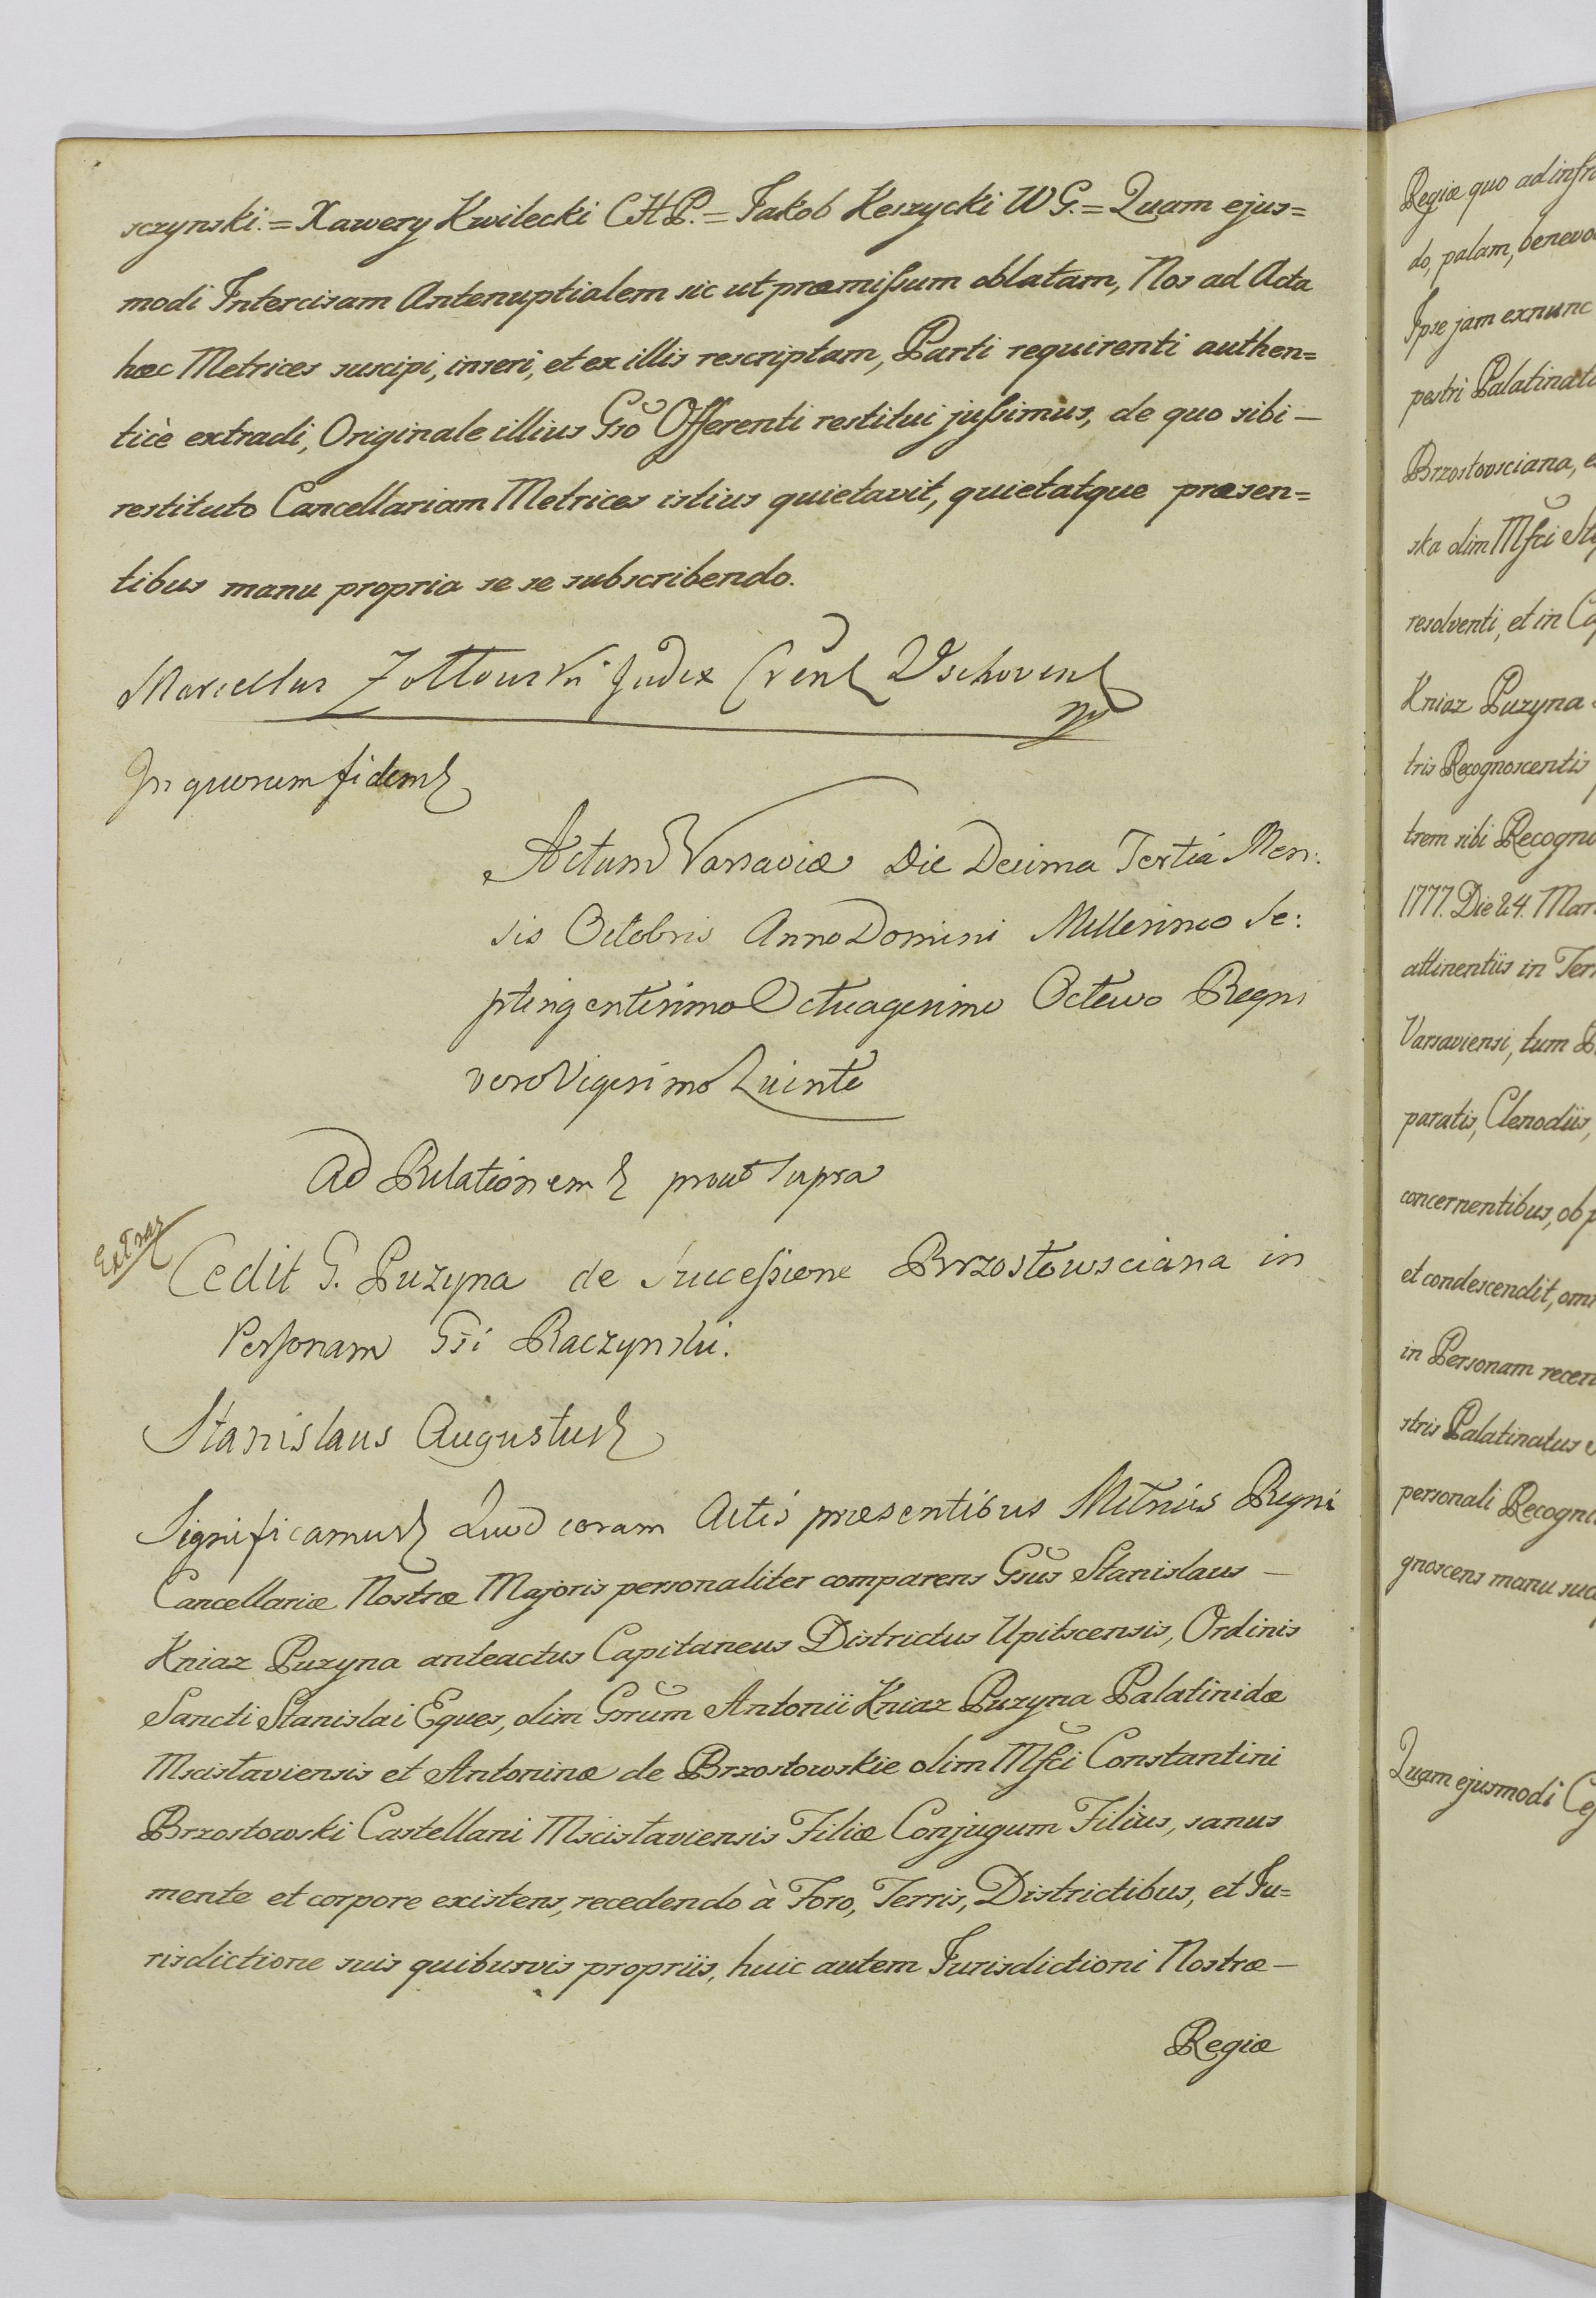 sczynski. = Xawery Kwilecki CHP. = Jakob Keszycki WG. = Quam ejus=
modi Intercisam Antenuptialem sic ut præmissum oblatam, Nos ad Acta
hæc Metrices suscipi, inseri, et ex illis rescriptam, Parti requirenti authen=
ticè extradi, Originale illius Gso Offerenti restitui jussimus, de quo sibi —
restituto Cancellariam Metrices istius quietavit, quietatque præsen=
tibus manu propria se se subscribendo.
Marcellus Zottowski Judex
In quorum fidem
Actum Varsaviæ Die Decima Tertiá Men:
sis Octobris Anno Domini Millesimo Se:
ptingentesimo Octuagesimo Octavo Regni
vero Vigesimo Quinto
Ad Relationem prout supra
Cedit G. Puzyna de Successione Brzostowsciana in
Personam Gsi Raczynski.
Stanislaus Augustus
Significamus Quod coram Actis præsentibus Metrices Regni
Cancellariæ Nostræ Majoris personaliter comparens Gsus Stanislaus —
Kniaz Puzyna anteactus Capitaneus Districtus Upitscensis, Ordinis
Sancti Stanislai Eques, olim Gsrum Antonii Kniaz Puzyna Palatinidæ
Mscistaviensis et Antoninæ de Brzostowskie olim Mfci Constantini
Brzostowski Castellani Mscistaviensis Filiæ Conjugum Filius, sanus
mente et corpore existens, recedendo à Foro, Terris, Districtibus, et Ju=
risdictione suis quibusvis propriis, huic autem Jurisdictioni Nostræ —
Regiæ
Regiæ quo ad infra
do, palam, benevo
Ipse jam exnunc
pestri Palatinatu
Brzostovsciana, e
ska olim Mfci
resolventi, et in Ca
Kniaz Puzyna
tris Recognoscentis
trem sibi Recogno
1777. Die 24. Mar
attinentiis in Ter
Varsaviensi, tum
paratis, Clenodiis,
concernentibus, ob
et condescendit, om
in Personam recen
stris Palatinatus
personali Recogni
gnoscens manu sua
Quam ejusmodi